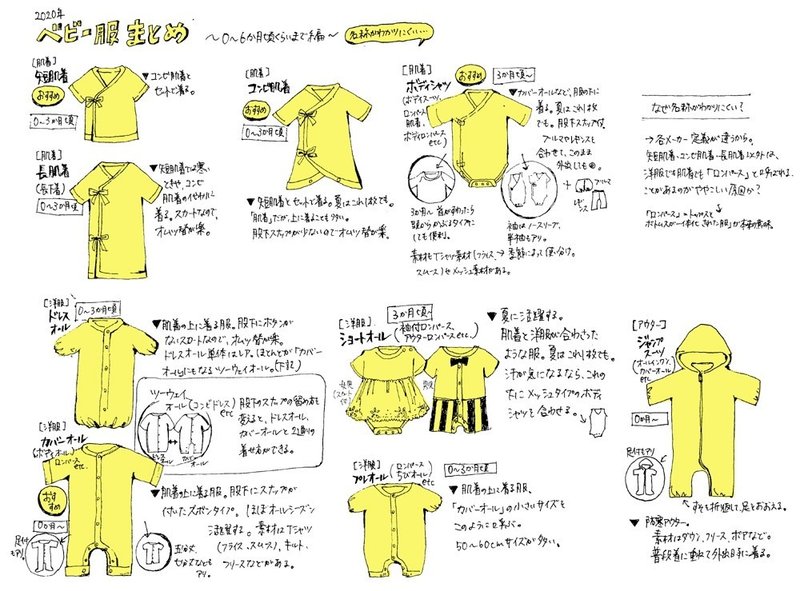 2020年
ベビー服まとめ 〜0〜6か月頃くらいまで編〜 名称がわかりにくい…
[肌着]
短肌着
おすすめ
0〜3か月頃
▼コンビ肌着と
セットで着る。
[肌着]
長肌着
0〜3か月頃
▼短肌着では寒い
ときや、コンビ
肌着のイメージ
着る。スカートなので、
オムツ替が楽。
[肌着]
コンビ肌着
おすすめ
0〜3か月頃
▼短肌着とセットで着る。夏はこれ1枚でも。
「肌着」だが、上に着ることも多い。
股下スナップが少ないのでオムツ替が楽。
[肌着]
ボディシャツ
おすすめ
3か月頃〜
(ボディスーツ、
ロンパース
肌着、
ボディロンパース
etc)
▼カバーオールなど、服の下に
着る。夏はこれ1枚
でも。股下スナップ付。
ブルマやレギンスと
合わせて、このまま
外出しても◎。
ブルマ
レギンス
3か月〜 首がすわったら
頭からかぶるタイプに
しても便利。
袖はノースリーブ、
半袖もアリ。
→季節によって使い分け。
素材もTシャツ素材(フライス、
スムース)やメッシュ素材がある。
なぜ名称がわかりにくい?
→各メーカー定義が違うから。
短肌着・コンビ肌着・長肌着以外は、
洋服でも肌着でも「ロンパース」と呼ばれる
ことがあるのがややこしい原因か?
「ロンパース」=トップスと
ボトムスが一体化された服」が本来の意味。
[洋服]
ドレス
オール
0〜3か月頃
▼肌着の上に着る服。股下にボタンが
ないスカートなので、オムツ替が楽。
ドレスオール単体はレア。ほとんどが「カバー
オールにもなるツーウェイオール。(下記)
ツーウェイ
オール(コンビドレス)
etc
ドレス
オール
カバー
オール
股下のスナップの留め方を
変えると、ドレスオール、
カバーオールと2通りの
着せ方ができる。
[洋服]
カバーオール
(ボディオール)
ロンパース
etc
おすすめ
0か月〜
足付
もアリ。
▼肌着の上に着る服。股下にスナップが
付いたズボンタイプ。ほぼオールシーズン
活躍する。素材はTシャツ
(フライス、スムス)、キルト、
フリースなどがある。
五分丈、
七分丈なども
アリ。
[洋服]
ショートオール
3か月頃〜
(袖付ロンパース、
アウターロンパース etc)
女児
(スカート
付)
男児
▼夏に活躍する。
肌着と洋服が合わさった
ような服。夏はこれ1枚でも。
汗が気になるなら、これの
下にメッシュタイプのボディ
シャツを合わせる。
[洋服]
プレオール
(ロンパース
ちびオール)
etc
0〜3か月頃
▼肌着の上に着る服、
「カバーオール」の小さいサイズを
このように呼ぶ。
50〜60cmサイズが多い。
[アウター]
ジャンプ
スーツ
(オールインワン、
カバーオール
etc
0か月〜
足付もアリ
すそも折り返して足をおおえる。
▼防寒アウター。
素材はダウン、フリース、ボアなど。
普段着に重ねて外出時に着る。